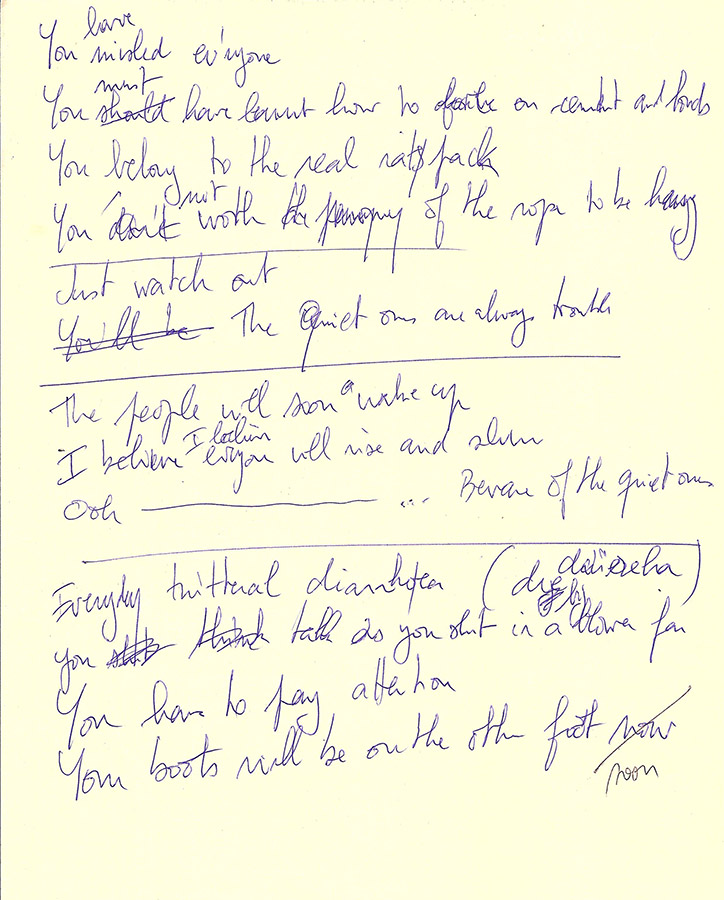 have
You misled ev'ryone
must
You should have learnt how to on and
You belong to the real rats pack
not
You don't worth the of the rope to be hang
Just watch out
You'll be The Quiet ones are always trouble
The people will soon wake up
I believe
I believe ev'ryone will rise and
Ooh ... Beware of the quiet ones
Everyday twitteral diarrhoea (
you think talk as you shit in a blower fan
You have to pay attention
Your boots will be on the other foot now
soon